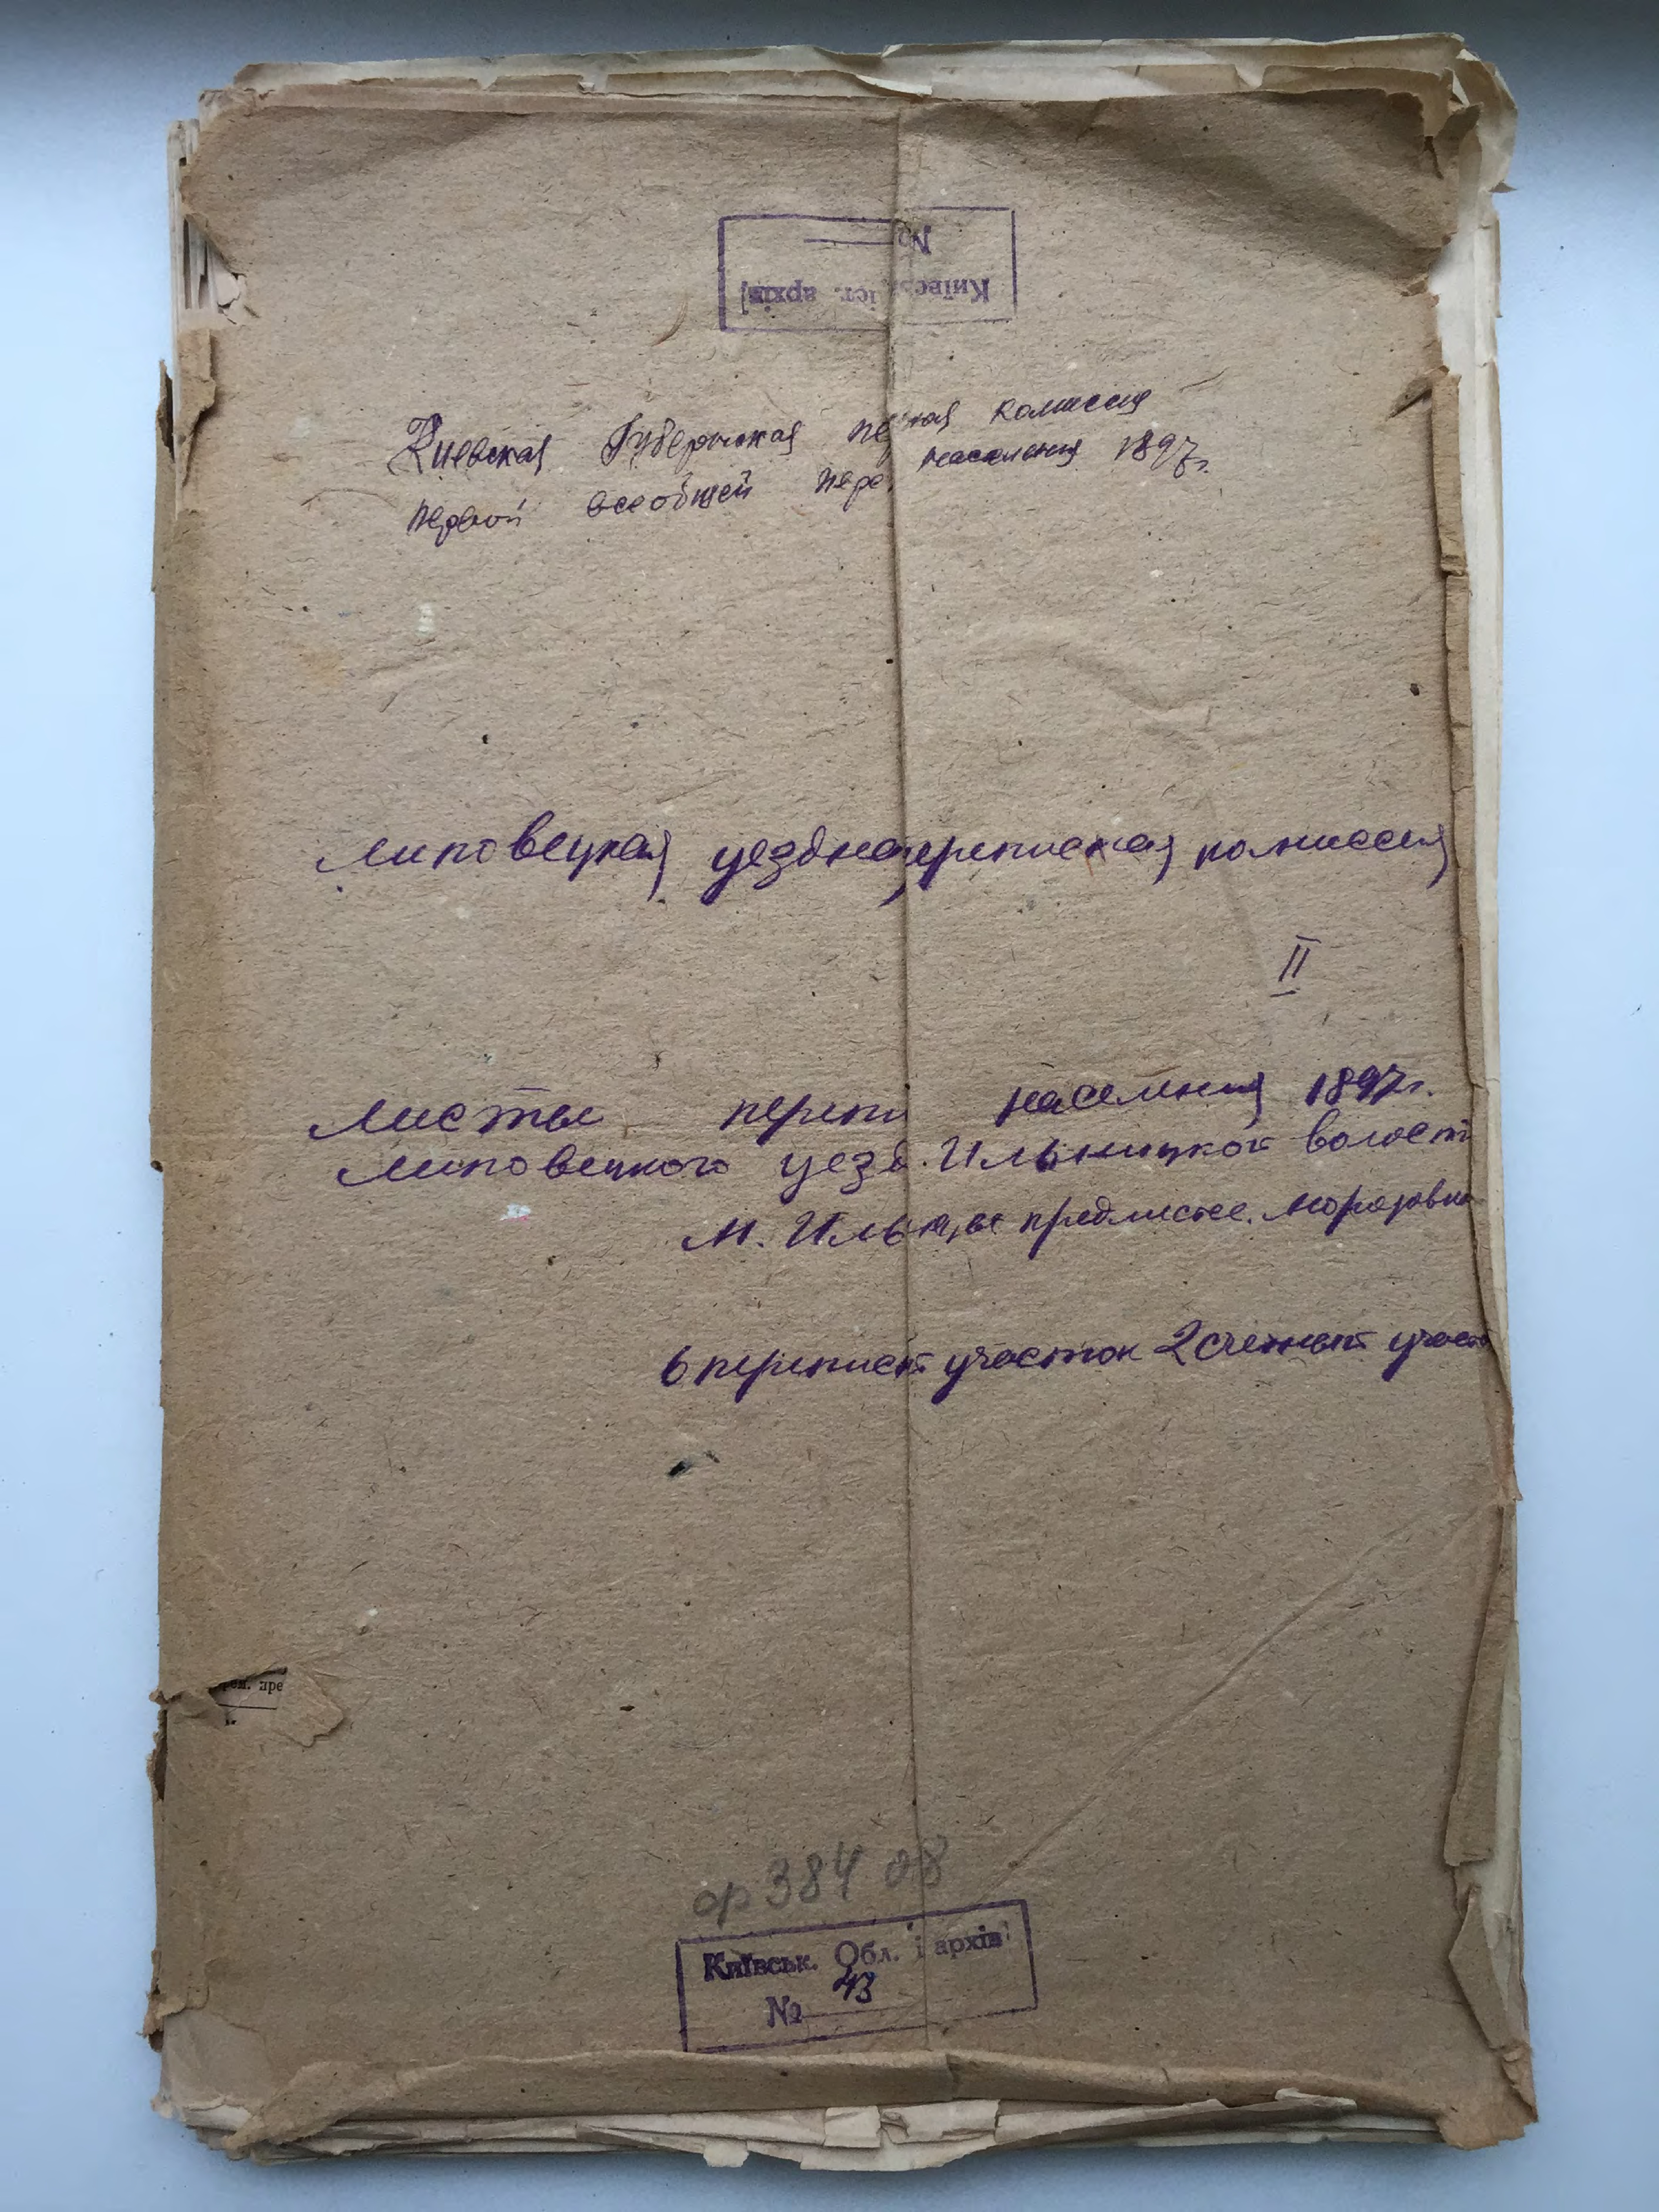 Київськ. іст. архів
№
Киевская Губернская пе ная комиссия
первой всеобщей пере населения 1897г.
Липовецкая уездна переписная комиссия
II
Листы переп населения 1897г.
Липовецкого уезд. Ильницкой волост
м. Ильинцы предместье Морозовка
6 переписн участок 2 счетный участ
пре
ор 384 08
Київськ. Обл. і архів
№ 43